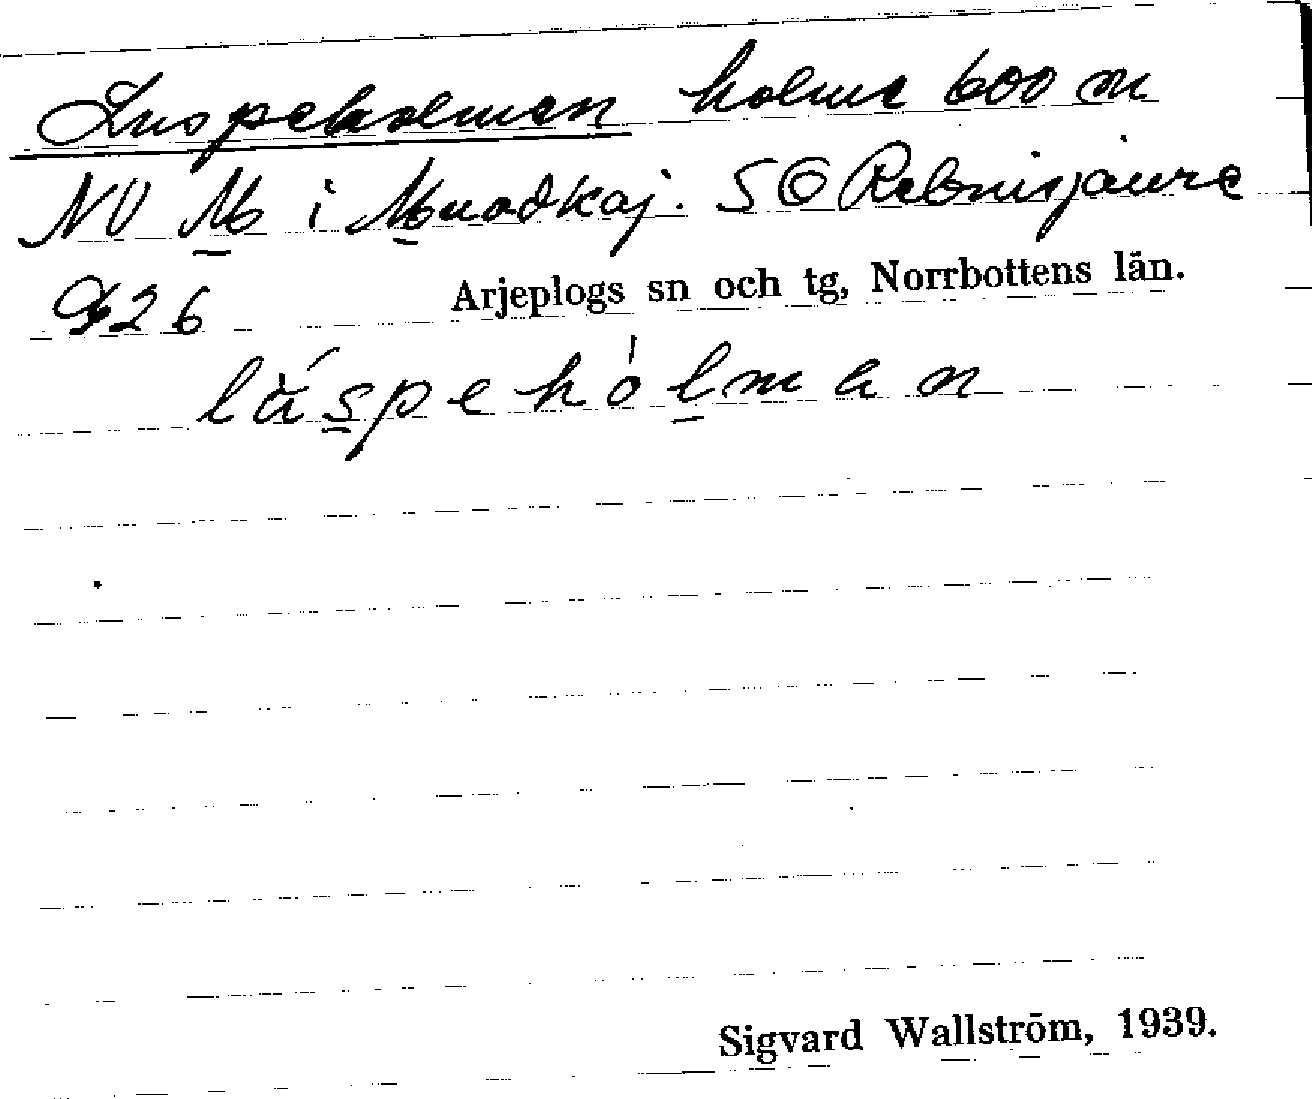 Luspeholmen holme 600 m
NV M i Muodkaj. SO Rebnisjaure
926 Arjeplogs sn och tg, Norrbottens län.
lŭ́spehólman
Sigvard Wallström, 1939.